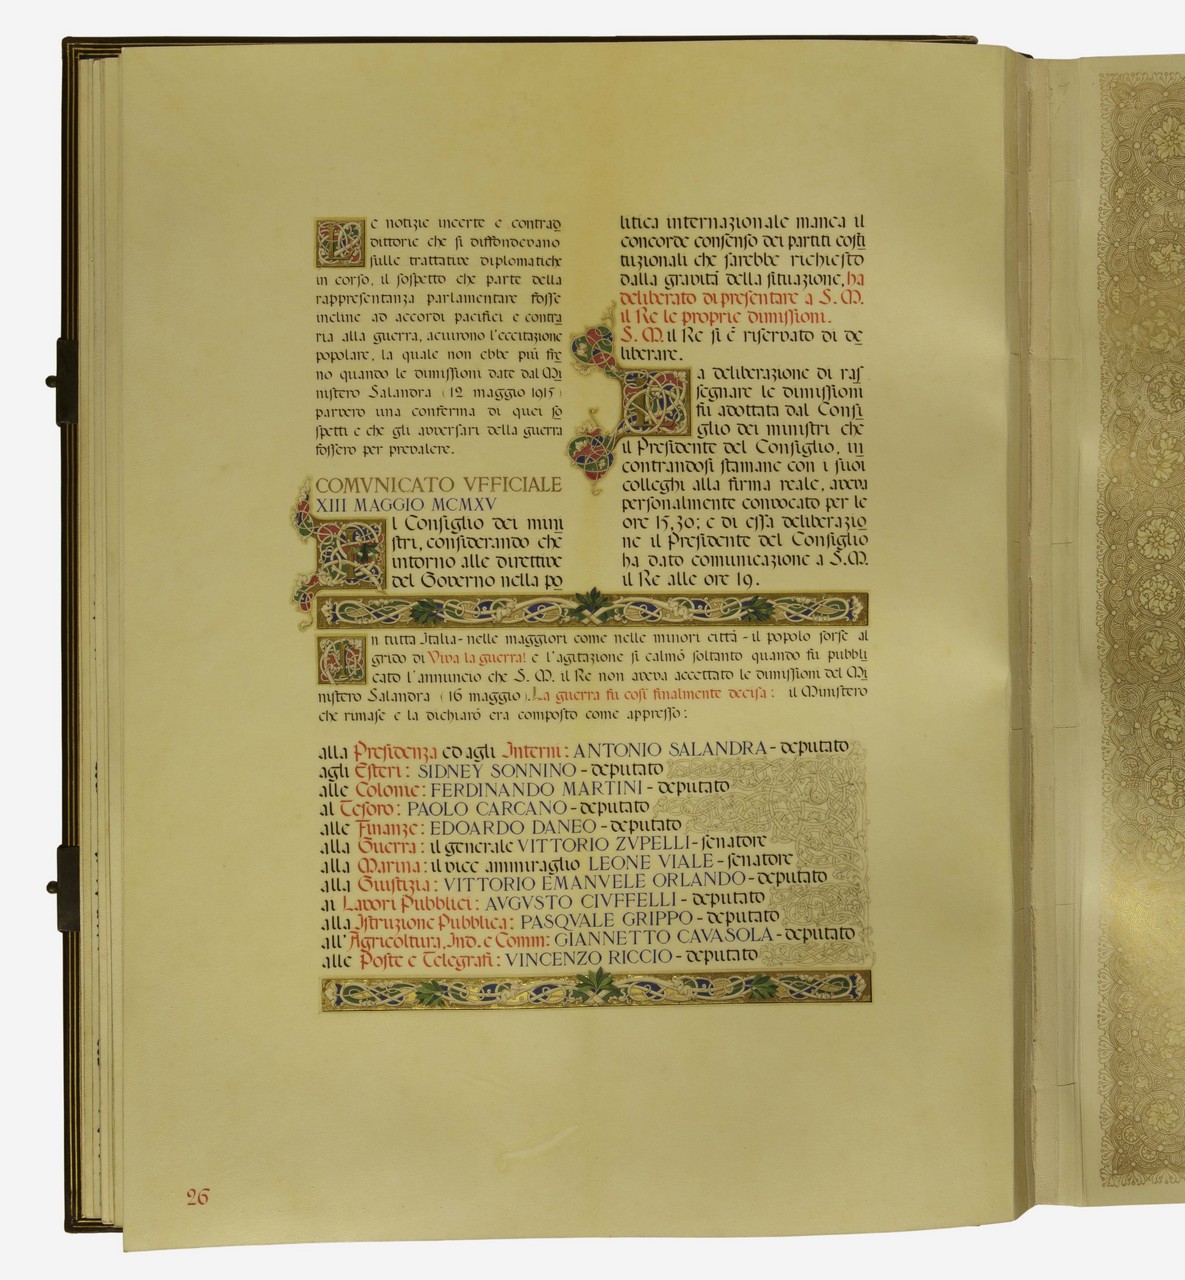 Le notizie incerte e contrad
dittorie che si diffondevano
sulle trattative diplomatiche
in corso, il sospetto che parte della
rappresentanza parlamentare fosse
incline ad accordi pacifici e contra
ria alla guerra, acuirono l'eccitazione
popolare, la quale non ebbe più fre
no quando le dimissioni date dal Mi
nistero Salandra (12 maggio 1915)
parvero una conferma di quei so
spetti e che gli avversari della guerra
fossero per prevalere.
COMVNICATO VFFICIALE
XIII MAGGIO MCMXV
Il Consiglio dei mini
stri, considerando che
intorno alle direttive
del Governo nella po
litica internazionale manca il
concorde consenso dei partiti costi
tuzionali che sarebbe richiesto
dalla gravità della situazione, ha
deliberato di presentare a S. M.
il Re le proprie dimissioni.
S. M. il Re si è riservato di de
liberare.
La deliberazione di ras
segnare le dimissioni
fu adottata dal Consi
glio dei ministri che
il Presidente del Consiglio, in
contrandosi stamane con i suoi
colleghi alla firma reale, aveva
personalmente convocato per le
ore 15,30; e di essa deliberazio
ne il Presidente del Consiglio
ha dato comunicazione a S. M.
il Re alle ore 19.
In tutta Italia - nelle maggiori come nelle minori città - il popolo sorse al
grido di Viva la guerra! e l'agitazione si calmò soltanto quando fu pubbli
cato l'annuncio che S. M. il Re non aveva accettato le dimissioni del Mi
nistero Salandra (16 maggio). La guerra fu così finalmente decisa: il Ministero
che rimase e la dichiarò era composto come appresso:
alla Presidenza ed agli Interni: ANTONIO SALANDRA - deputato
agli Esteri: SIDNEY SONNINO - deputato
alle Colonie: FERDINANDO MARTINI - deputato
al Tesoro: PAOLO CARCANO - deputato
alle Finanze: EDOARDO DANEO - deputato
alla Guerra: il generale VITTORIO ZVPELLI - senatore
alla Marina: il vice ammiraglio LEONE VIALE - senatore
alla Giustizia: VITTORIO EMANVELE ORLANDO - deputato
ai Lavori Pubblici: AVGVSTO CIVFFELLI - deputato
alla Istruzione Pubblica: PASQVALE GRIPPO - deputato
all'Agricoltura, Ind. e Comm: GIANNETTO CAVASOLA - deputato
alle Poste e Telegrafi: VINCENZO RICCIO - deputato
26